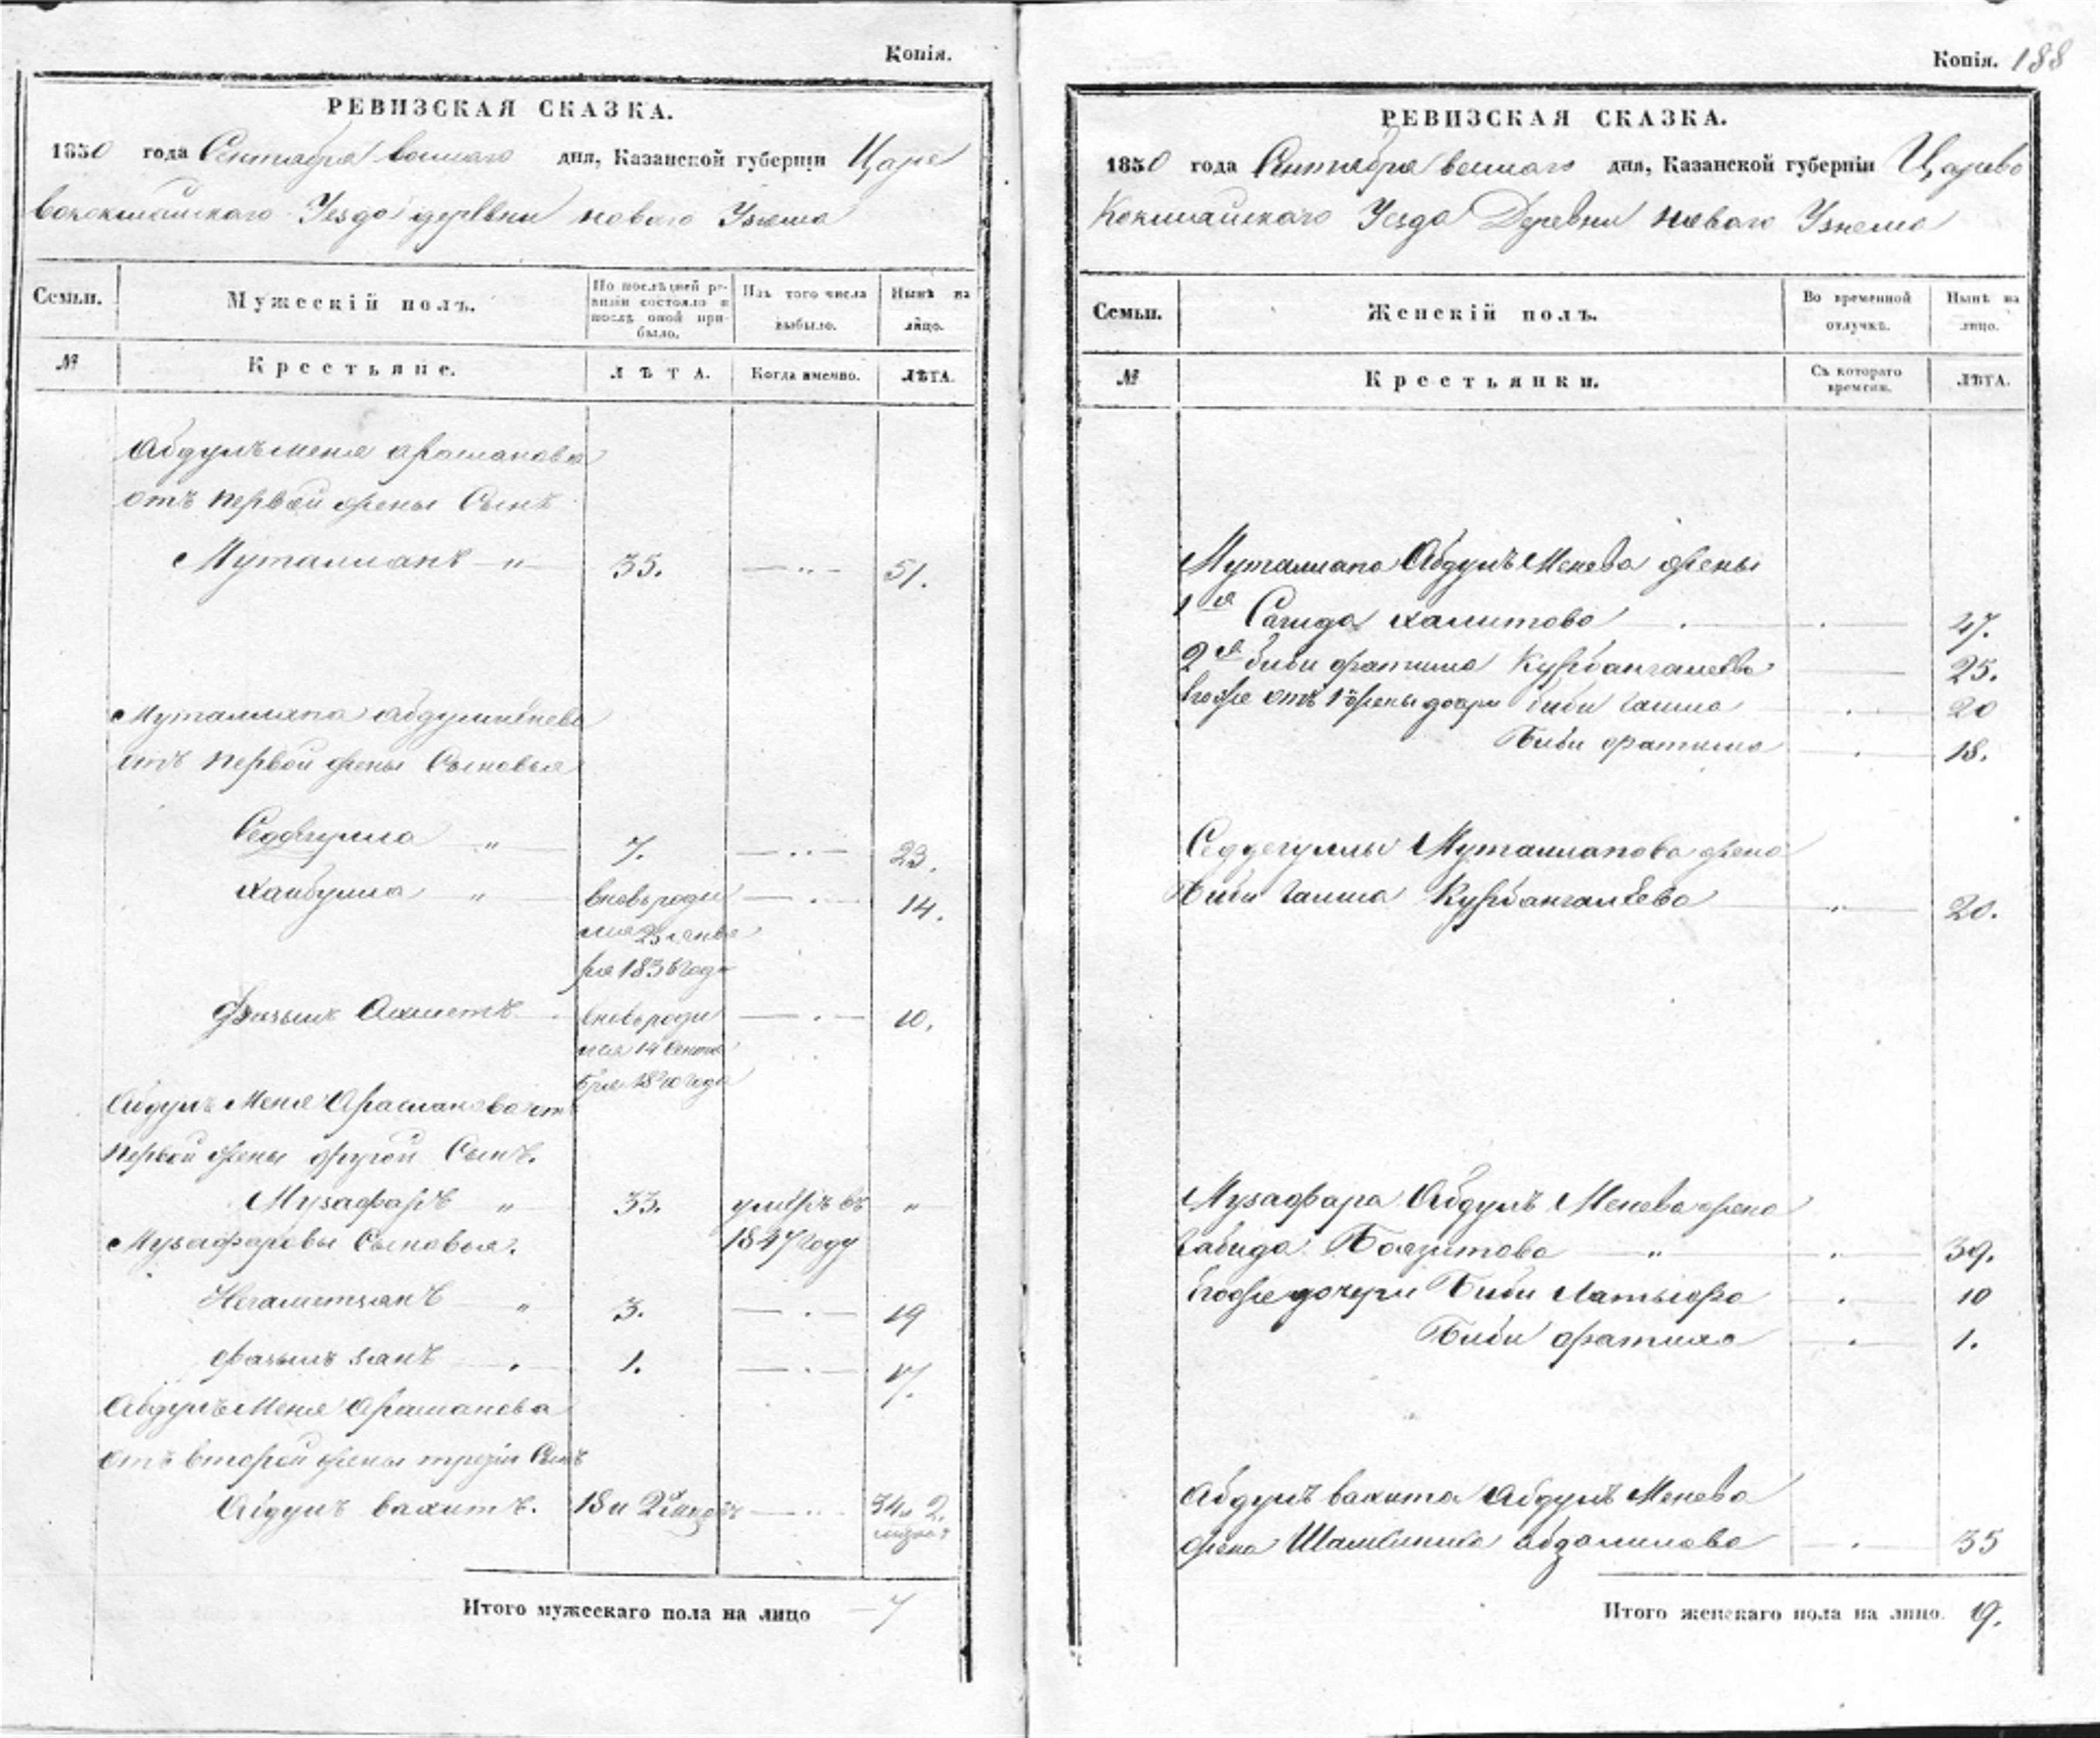 Копія.
РЕВИЗСКАЯ СКАЗКА.
1850 года Сентября дня, Казанской губерніи Царе
вококшайскаго Уезда деревни новаго Узюма
Семьи. Мужескій полъ. По послѣдней ревизіи состояло и послѣ оной прибыло. Изъ того числа выбыло. Нынѣ на лицо.
№ Крестьяне. ЛѢТА. Когда именно. ЛѢТА.
Абдулъменя Арасланова
отъ первой жены Сынъ
Муталлапъ " 35. 51.
Муталлапа Абдулменева
отъ первой жены Сыновья
Седдегулла " 7. 23.
Хайбулла " вновь роди 14.
лся 25 янва
ря 1836 года
Фазылъ Ахметъ вновь роди 10.
лся 14 Сентя
бря 1840 года
Абдулъ Меня Арасланова отъ
первой жены другой Сынъ.
Музафаръ " 33. умеръ въ "
Музафаровы Сыновья. 1847 году
Негаметзянъ " 3. 19
Фазылъ зянъ 1. 17.
Абдулъ Меня Арасланова
отъ второй жены третій Сынъ
Абдулъ вахитъ. 18 и 34 и 2.
Итого мужескаго пола на лицо 7
Копія. 188
РЕВИЗСКАЯ СКАЗКА.
1850 года Сентября дня, Казанской губерніи Царево
Кокшайскаго Уезда Деревни Новаго Узюма
Семьи. Женскій полъ. Во временной отлучкѣ. Нынѣ на лицо.
№ Крестьянки. Съ котораго времени. ЛѢТА.
Муталлапа Абдулъ Менева жены
1я Сагида Халитова 47.
2я биби фатима Курбангалеева 25.
его же отъ 1й жены дочери биби Гайша 20
Биби фатима 18.
Седдегуллы Муталлапова жена
Биби Гайша Курбангалеева " 20.
Музафара Абдулъ Менева жена
Габида Баязитова " 39.
его же дочери Биби Латыфа 10
Биби фатиха 1.
Абдулъ вахита Абдулъ Менева
жена 35
Итого женскаго пола на лицо. 9.